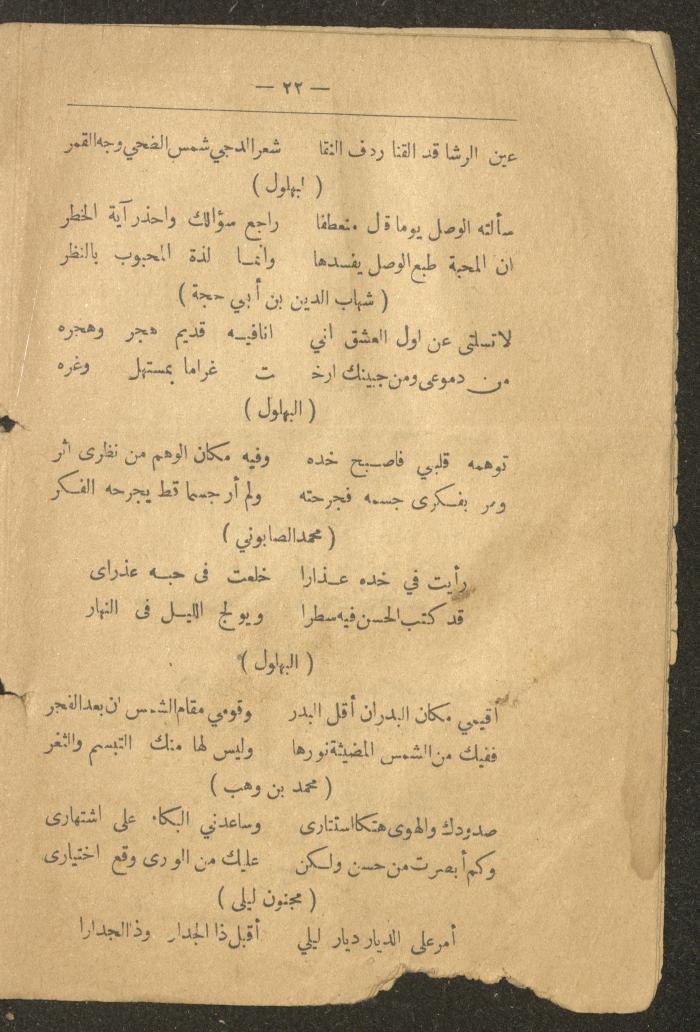 — ٢٢ —
عين الرشا قد القنا ردف النقا شعر الدجي شمس الضحي وجه القمر
( لبهلول )
سألته الوصل يوما قال منعطفا راجع سؤالك واحذر آية الخطر
ان المحبة طبع الوصل يفسدها وانمـا لذة المحبوب بالنظر
( شهاب الدين بن أبي حجة )
لا تسلنى عن اول العشق اني انا فيـه قديم هجر وهجره
من دموعى ومن جبينك ارخـ ـت غراما بمستهل وغره
( البهلول )
توهمه قلبي فاصبح خده وفيه مكان الوهم من نظرى اثر
ومر بفكرى جسمه فجرحته ولم أر جسما قط يجرحه الفكر
( محمد الصابوني )
رأيت في خده عـذارا خلعت فى حبـه عذراى
قد كتب الحسن فيه سطرا ويولج الليـل فى النهار
( البهلول )
اقيمي مكان البدر ان أقل البدر وقومي مقام الشمس ان بعد الفجر
ففيك من الشمس المضيئة نورها وليس لها منك التبسم والثغر
( محمد بن وهب )
صدودك والهوى هتكا استتارى وساعدني البكاء على اشتهارى
وكم أبصرت من حسن ولكن عليك من الورى وقع اختيارى
( مجنون ليلى )
أمر على الديار ديار ليلي أقبل ذا الجدار وذا الجدارا